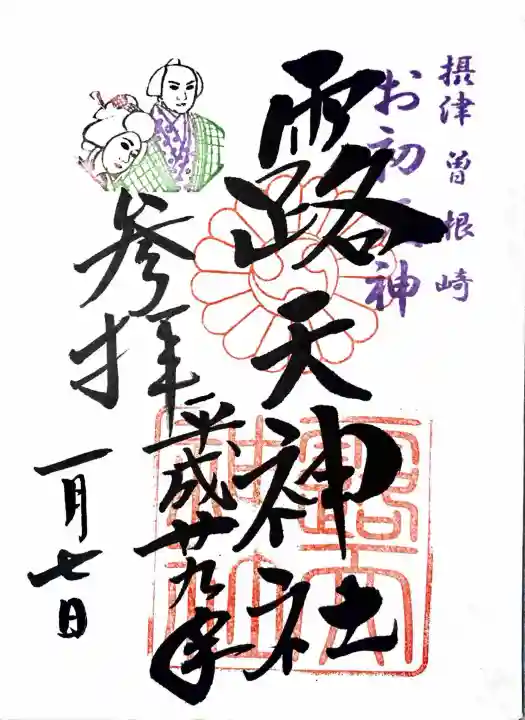 摂津 曽根崎
お初天神
露天神社
参拝
平成廿九年
一月七日
露天神社